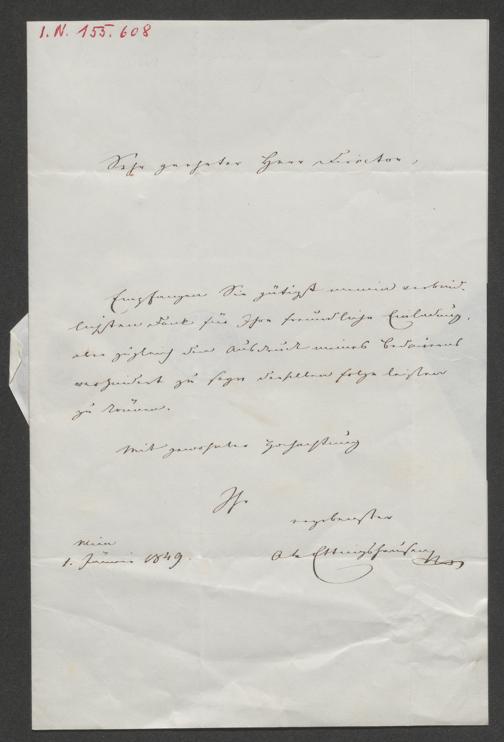 I.N. 155.608
Sehr geehrter Herr Director,
Empfangen Sie gütigst meinen verbind-
lichsten Dank für Ihre freundliche Einladung,
aber zugleich den Ausdruck meines Bedauerns
verhindert zu seyn derselben folge leisten
zu können.
Mit gewohnter Hochachtung
Ihr
ergebenster
Wien
1. Jänner 1849.
A v Ettingshausen